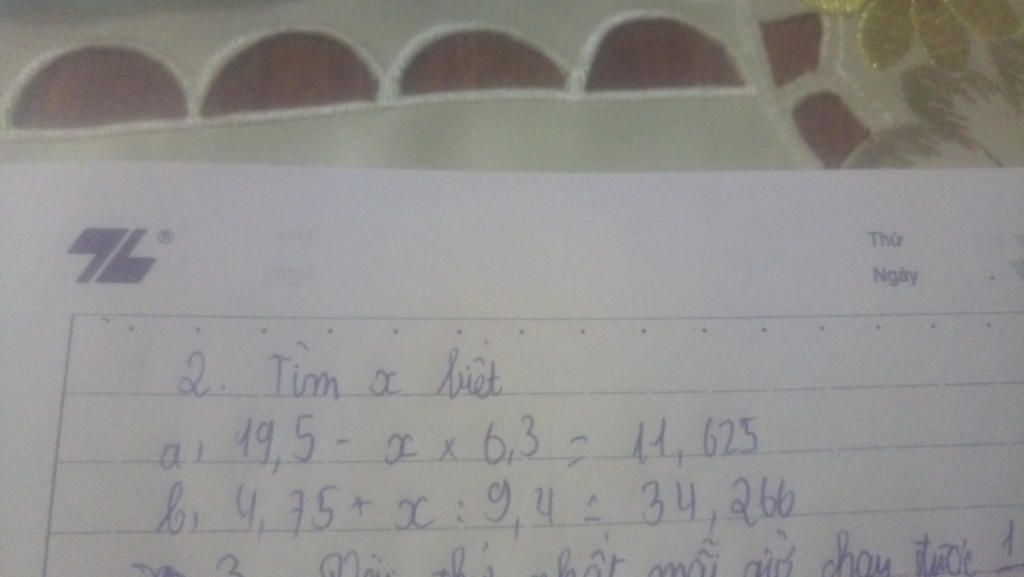 ZL®
Thứ
Ngày
2. Tìm x biết
a, 19,5 - x × 6,3 = 11,625
b, 4,75 + x : 9,4 = 34,266
3. thứ nhất mỗi giờ chạy được 1